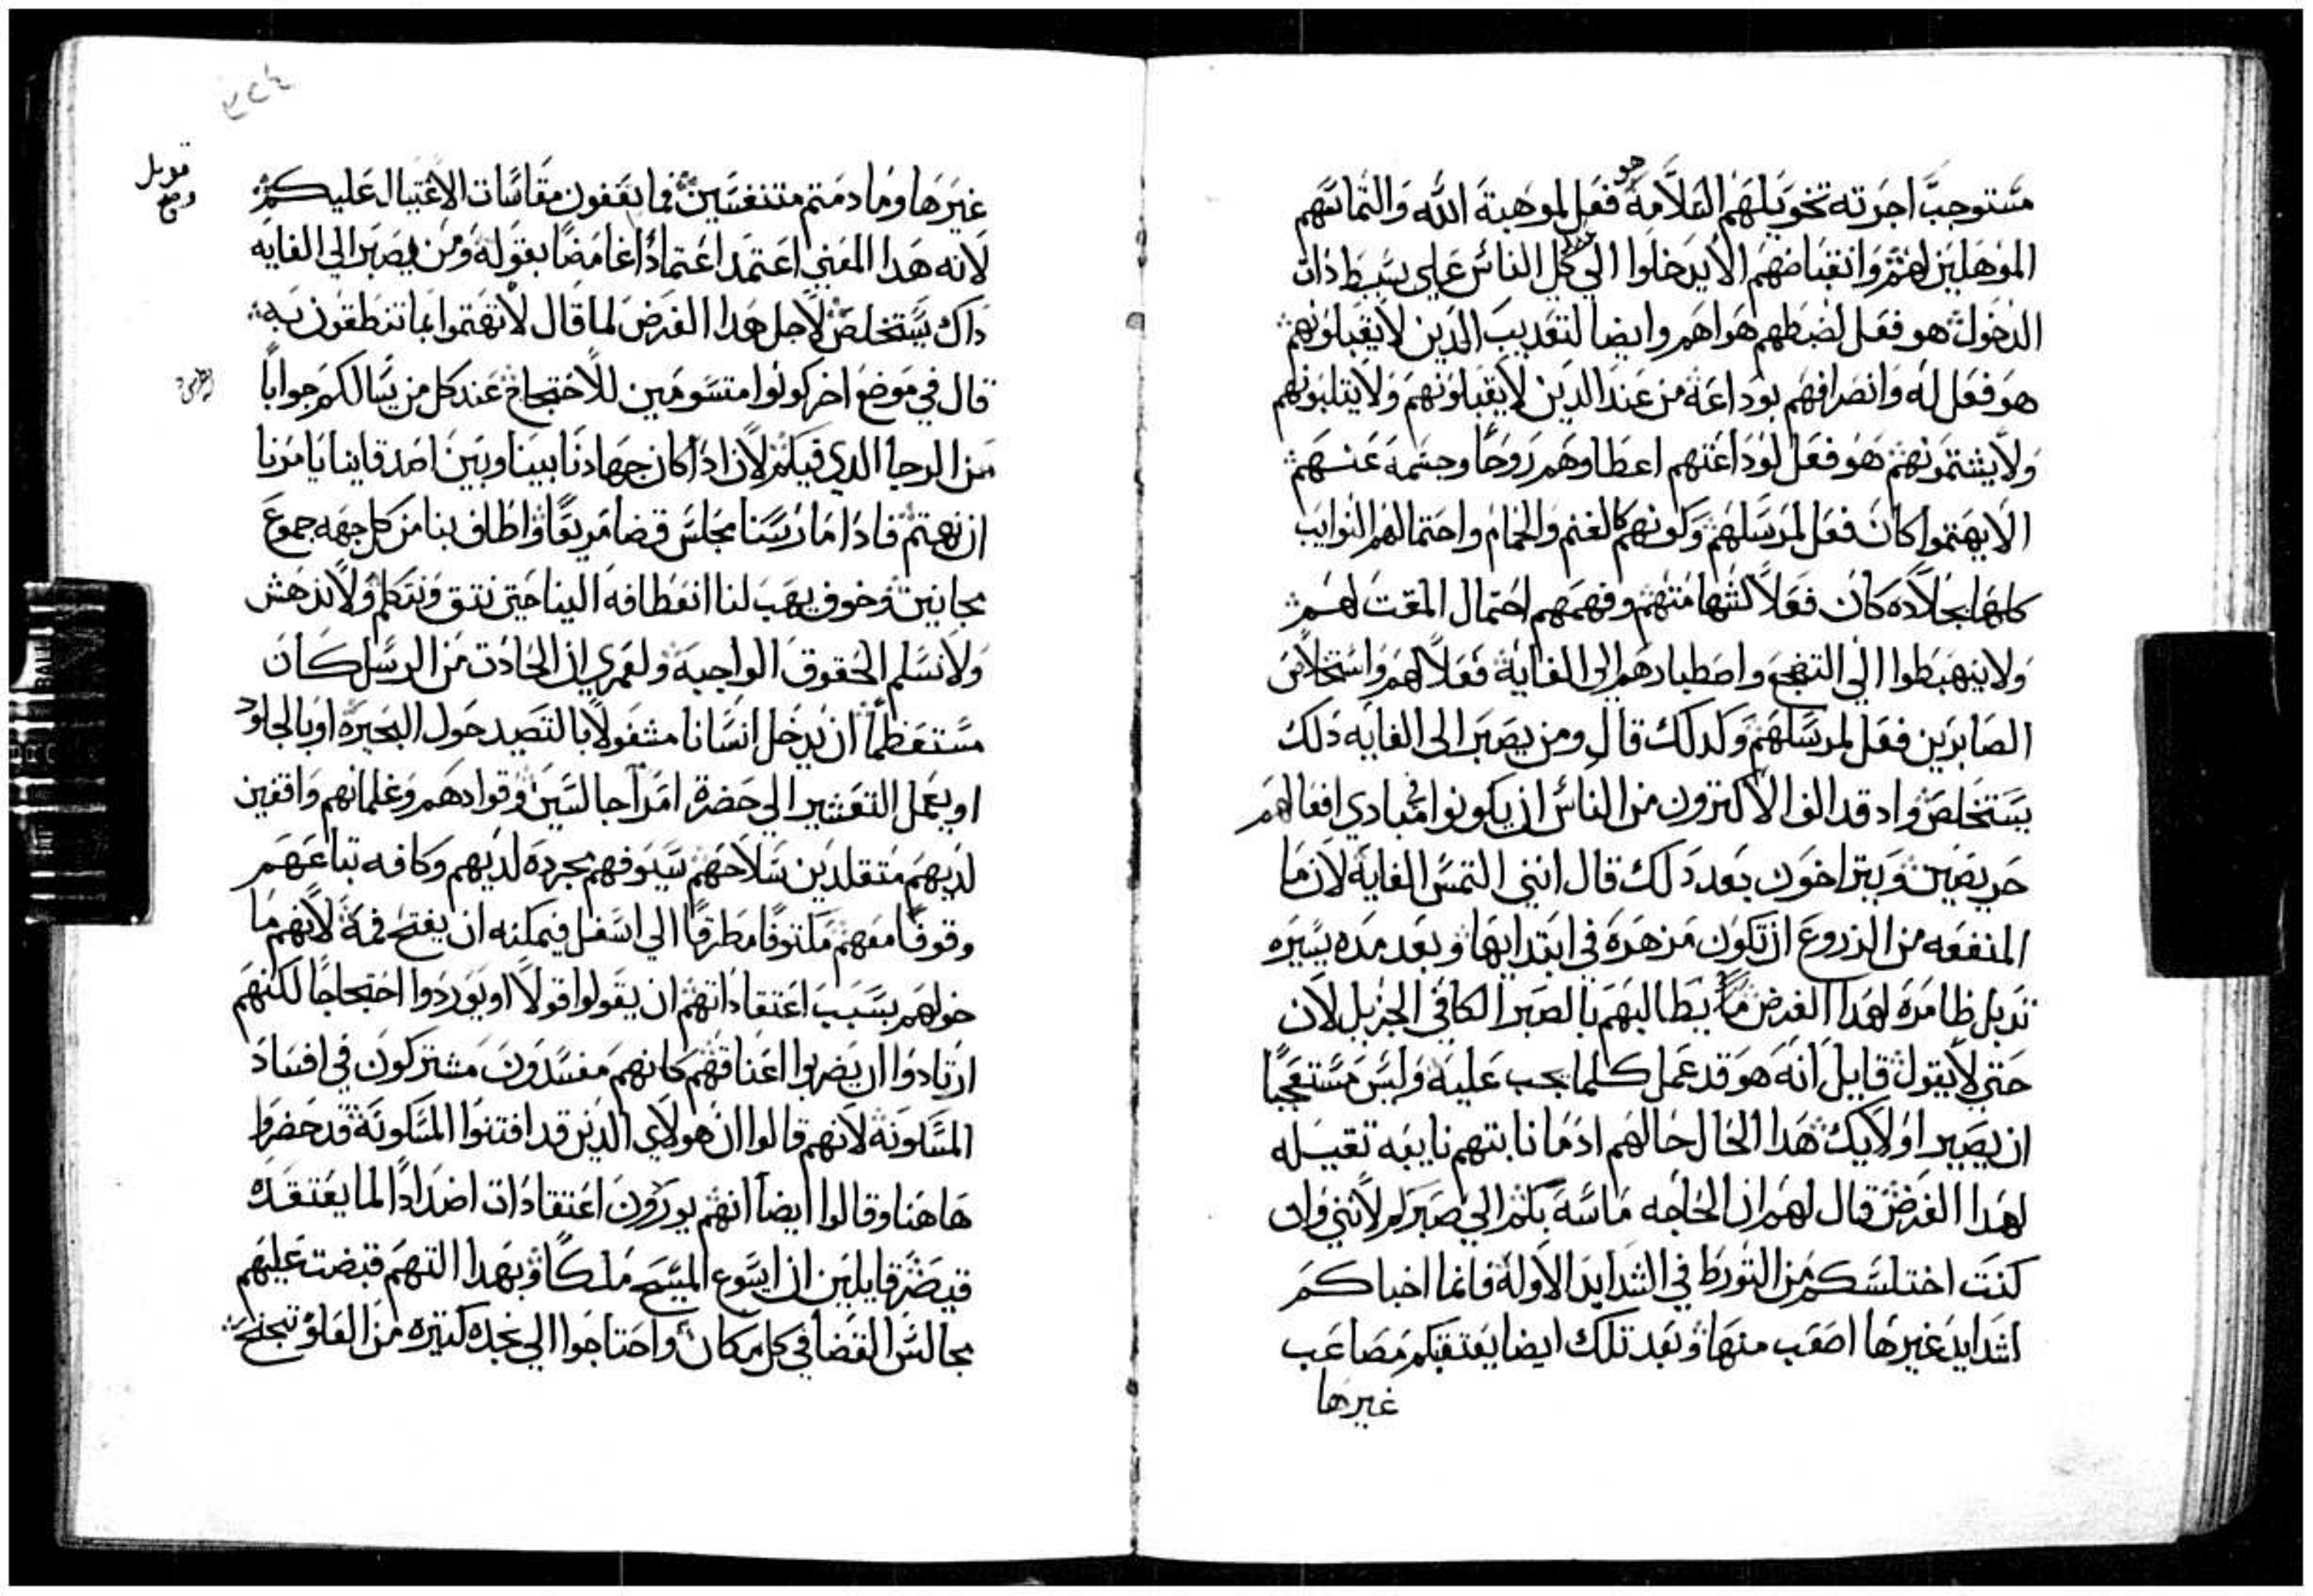 مستوجب اجرته تخويلهم السلامة هو فعل لموهبة الله والتماسهم
الموهلين لهم وانقباضهم الا يدخلوا الي كل الناس علي بسيط ذات
الدخول هو فعل لضبطهم هواهم وايضا لتعديب الدين لا يقبلونهم
هو فعل له وانصرافهم بوداعة من عند الدين لا يقبلونهم ولا يتلبونهم
ولا يشتمونهم هو فعل لوداعتهم اعطاوهم روحا وحشمة عنسهم
الا يهتموا كان فعل لمرسلهم وكونهم كالغنم والحمام واحتمالهم النوايب
كلها بجلاده كان فعلا لشهامتهم وفهمهم احتمال المقت لهم
ولا ينهبطوا الي التفجع واصطبارهم الي الغاية فعلا لهم واستخلاص
الصابرين فعل لمرسلهم ولدلك قال ومن يصبر الى الغايه دلك
يستخلص واد قد الف الاكترون من الناس ان يكونوا في مبادي افعالهم
حريصين ويتراخون بعد دلك قال انني التمس الغاية لان ما
المنفعه من الزروع ان تكون مزهرة في ابتدايها وبعد مده يسيره
تدبل ظامرة لهدا الغرض ما يطالبهم بالصبر الكافي الجزيل لان
حتي لا يقول قايل انه هو قد عمل كلما يجب عليه وليس مستعجبا
ان يصير اولايك هدا الحال حالهم اد ما نابتهم نايبه تقيله
لهدا الغرض قال لهم ان الحاجه ماسة بكم الي صبر لانني وان
كنت اختلسكم من التورط في الشدايد الاولة فانما اخباكم
لشدايد غيرها اصعب منها وبعد تلك ايضا يعتقبكم مصاعب
غيرها
قوبل
وصح
غيرها وما دمتم متنفسين فما يقفون مقاسات الاغتيال عليكم
لانه هدا المعني اعتمد اعتمادا غامضا بقوله ومن يصبر الي الغايه
داك يستخلص لاجل هدا الغرض لما قال لا تهتموا بما تنطقون به
قال في موضع اخر كونوا متسومين للاحتجاج عند كل من يسالكم جوابا
من الرجا الدي فيكم لان ادا كان جهادنا بيننا وبين اصدقاينا يامرنا
ان نهتم فادا ما راينا مجلس قضا مريعا واطاف بنا من كل جهه جموع
مجانين وخوف يهب لنا انعطافه الينا حتى نتق ونتكلم ولا ندهش
ولا نسلم الحقوق الواجبة ولعمري ان الحادت من الرسل كان
مستعظما ان يدخل انسانا مشغولا بالتصيد حول البحيرة او بالجلود
او يعمل التعشير الي حضرة امرآ جالسين وقوادهم وغلمانهم واقفين
لديهم متقلدين سلاحهم سيوفهم مجرده لديهم وكافه تباعهم
وقوفا معهم مكتوفا مطرقا الي اسفل فيمكنه ان يفتح فمه لانهم ما
خولهم بسبب اعتقاداتهم ان يقولوا قولا او يوردوا احتجاجا لكنهم
ارتادوا ان يضربوا اعناقهم كانهم مفسدون مشتركون في افساد
المسكونة لانهم قالوا ان هولاي الدين قد افتنوا المسكونة قد حضروا
هاهنا وقالوا ايضا انهم يوردون اعتقادات اضدادا لما يعتقده
قيصر قايلين ان ايسوع المسيح ملكا وبهدا التهم قبضت عليهم
مجالس القضا في كل مكان واحتاجوا الي نجده كتيره من العلو تجنح